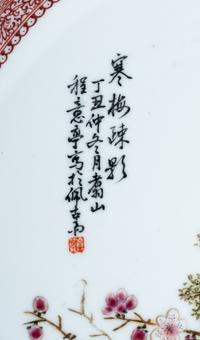 寒梅疎影
丁丑仲冬月翥山
程意亭寫於佩古齋